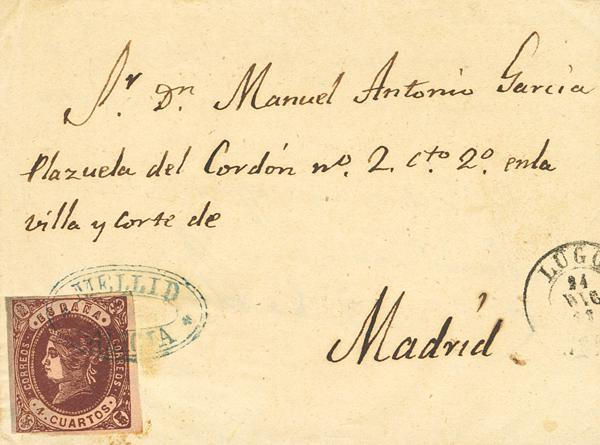 Sr. Dn. Manuel Antonio García
Plazuela del Cordón nº. 2. cto 2º. en la
villa y corte de
Madrid
MELLID
LUGO
24
DIC
ESPAÑA
CORREOS
CORREOS
4 CUARTOS